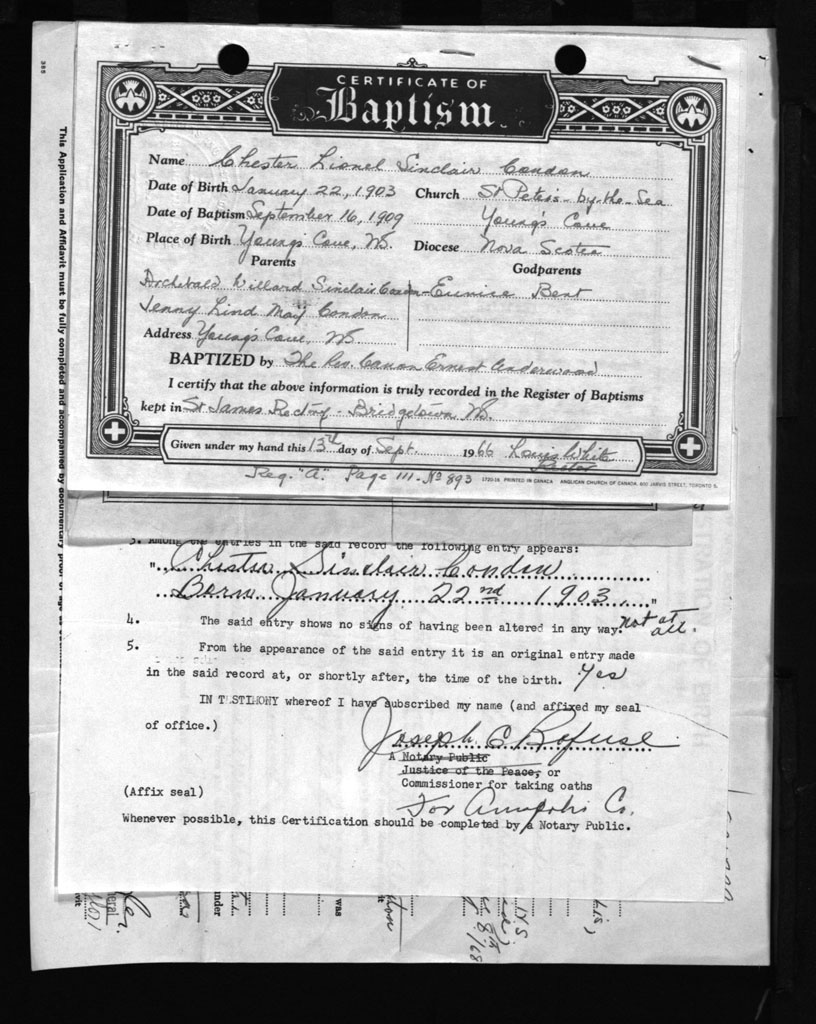 CERTIFICATE OF
Baptism
Name Chester Lionel Sinclair Condon
Date of Birth January 22, 1903 Church St Peter's-by-the-Sea
Date of Baptism September 16, 1909 Young's Cove
Place of Birth Young's Cove, NS. Diocese Nova Scotia
Parents Godparents
Archibald Willard Sinclair Condon Eunice Bent
Jenny Lind May Condon
Address Young's Cove, NS
BAPTIZED by The Rev. Canon Ernest Underwood
I certify that the above information is truly recorded in the Register of Baptisms
kept in St James Rectory - Bridgetown NS.
Given under my hand this 13th day of Sept. 1966 Louis White
Rector
Reg. "A". Page 111 - No 893
1720-16 PRINTED IN CANADA ANGLICAN CHURCH OF CANADA 600 JARVIS STREET, TORONTO 5.
3. Among the entries in the said record the following entry appears:
"Chester Sinclair Condon
Born January 22nd 1903"
4. The said entry shows no signs of having been altered in any way. not at all.
5. From the appearance of the said entry it is an original entry made
in the said record at, or shortly after, the time of the birth. Yes
IN TESTIMONY whereof I have subscribed my name (and affixed my seal
of office.)
Joseph C Rofuse
A Notary Public
Justice of the Peace, or
Commissioner for taking oaths
(Affix seal) For Annapolis Co.
Whenever possible, this Certification should be completed by a Notary Public.
385
This Application and Affidavit must be fully completed and accompanied by documentary proof of age
under
was